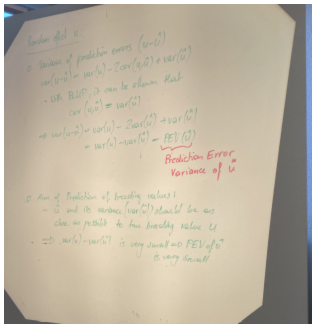 Random effect u
Variance of prediction errors (u-û)
var(u-û) = var(u) - 2cov(u,û) + var(û)
• With BLUP, it can be shown that
cov(u,û) = var(û)
⇒ var(u-û) = var(u) - 2var(û) + var(û)
= var(u) - var(û) = PEV(û)
Prediction Error
Variance of û
Aim of Prediction of breeding values:
- û and its variance (var(û)) should be as
close as possible to true breeding value u
⇒ var(u) - var(û) is very small ⇒ PEV of û
is very small